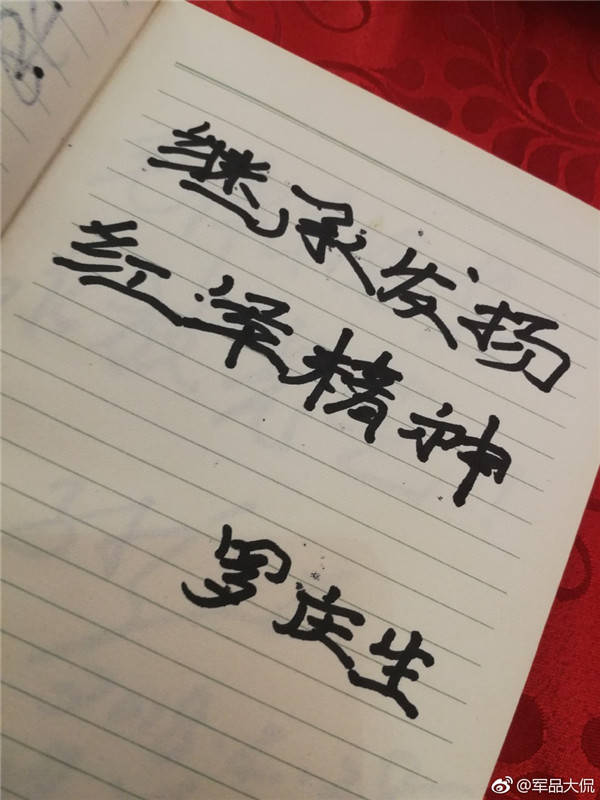 继承发扬
红军精神
罗庆生
@军品大侃